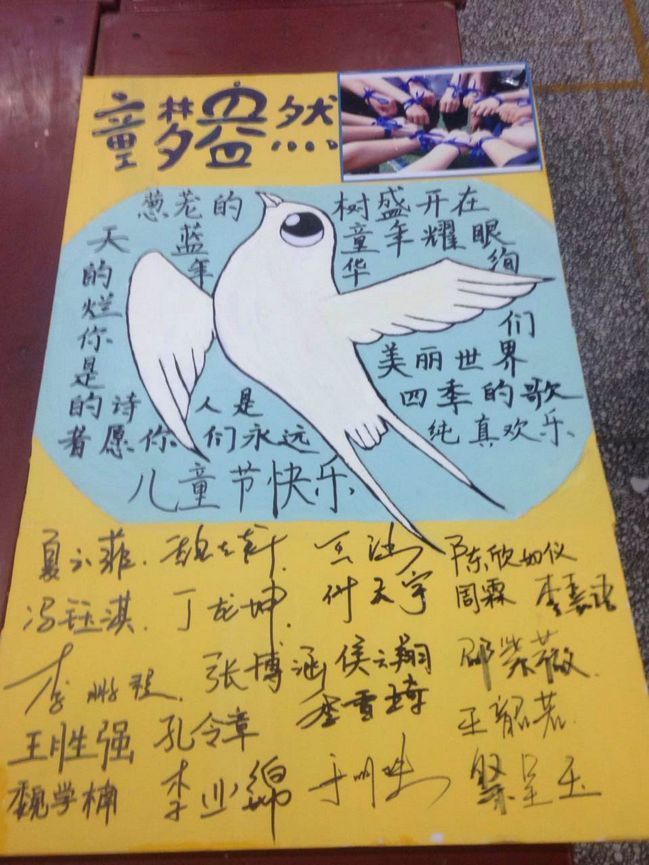 童梦盎然
葱茏的 树盛开在
天 蓝 童年耀眼
的 年 华 绚
烂 们
你 美丽世界
是 四季的歌
的诗 人是 纯真欢乐
者愿你 们永远
儿童节快乐
夏云菲 陈欣如仪
冯钰淇 丁龙坤 付天宇 周霖
李鹏程 张博涵 侯云翔 邵紫薇
王胜强 孔令章 季雪琦 王韶若
魏学楠 李业锦